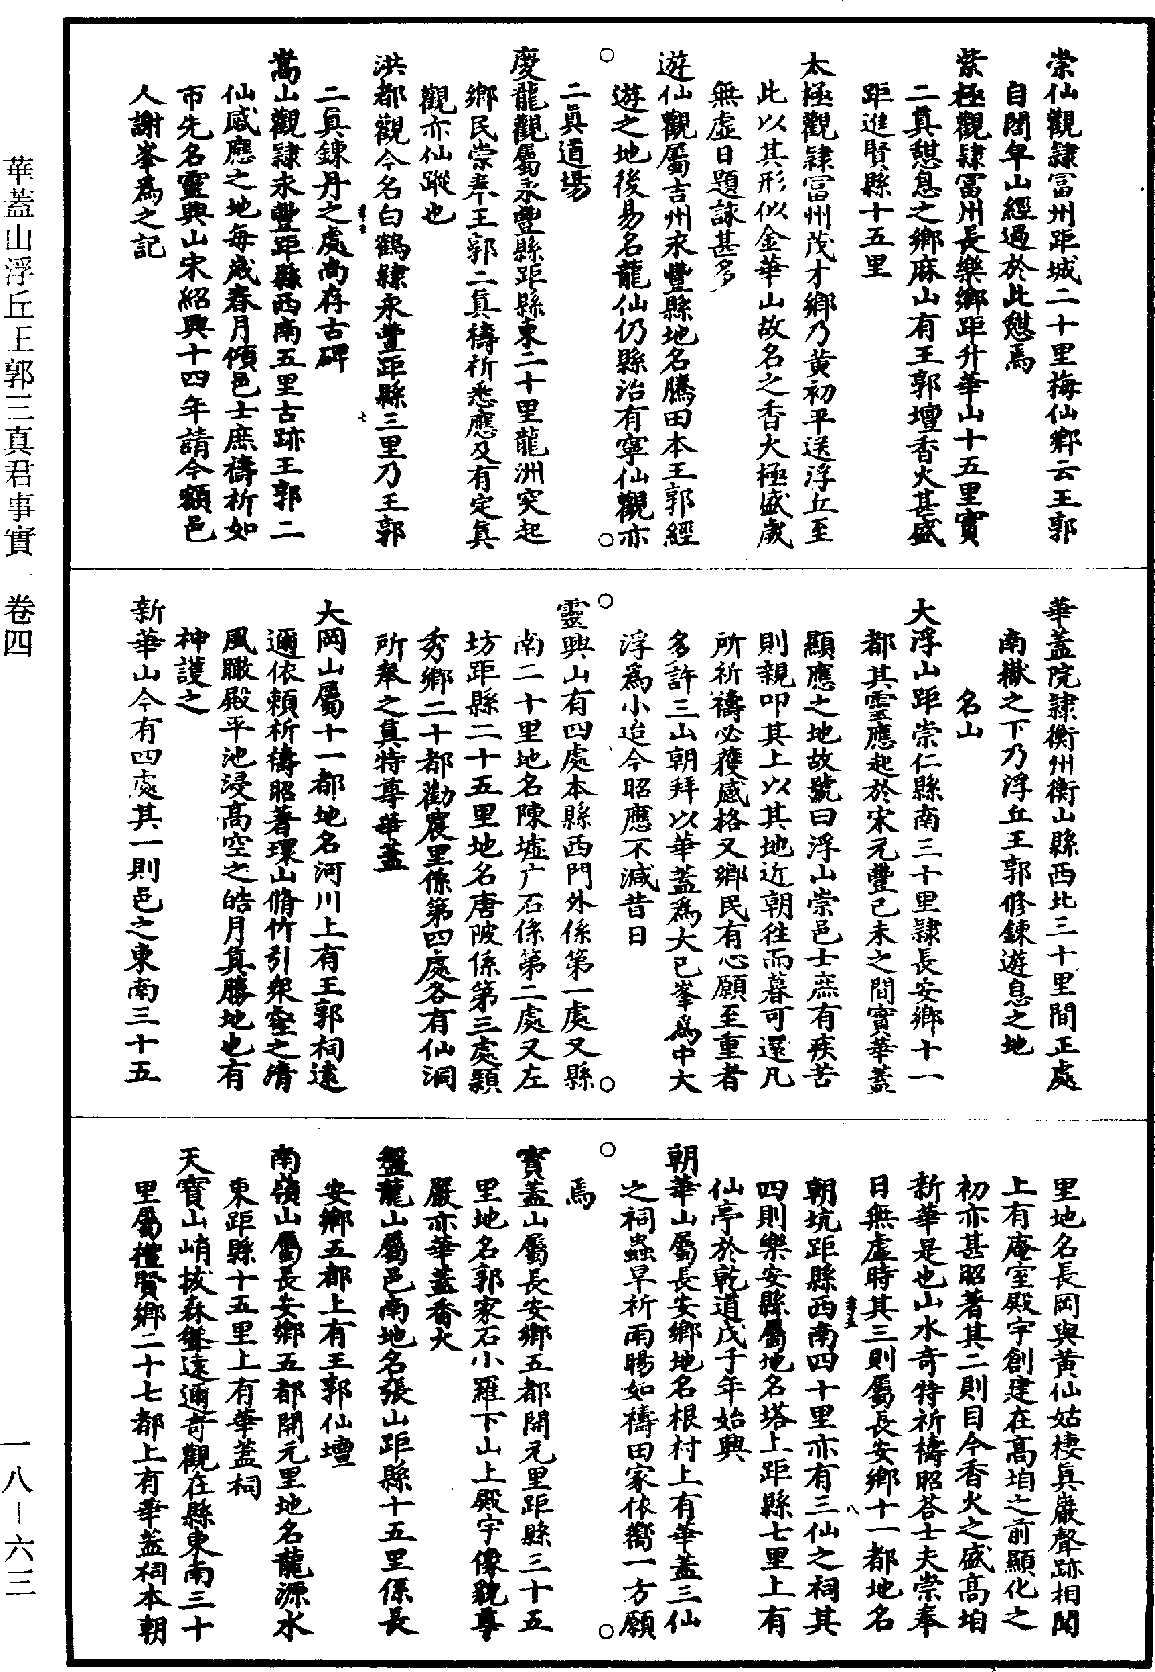 崇仙觀隸富州距城二十里梅仙鄉云王郭
自閤皁山經過於此憇焉
紫極觀隸富州長樂鄉距升華山十五里實
二眞憇息之鄉麻山有王郭壇香火甚盛
距進賢縣十五里
太極觀隸富州茂才鄉乃黃初平送浮丘至
此以其形似金華山故名之香火極盛歲
無虛日題詠甚多
遊仙觀屬吉州永豐縣地名騰田本王郭經
遊之地後易名龍仙仍縣治有寧仙觀亦
二眞道場
慶龍觀屬永豐縣距縣東二十里龍洲突起
鄉民崇奉王郭二眞禱祈悉應及有定眞
觀亦仙蹤也
洪都觀今名白鶴隸永豐距縣三里乃王郭
二眞鍊丹之處尚存古碑
嵩山觀隸永豐距縣西南五里古跡王郭二
仙感應之地每歲春月傾邑士庶禱祈如
市先名靈興山宋紹興十四年請今額邑
人謝峯爲之記
華蓋院隸衡州衡山縣西北三十里間正處
南嶽之下乃浮丘王郭修鍊遊息之地
名山
大浮山距崇仁縣南三十里隸長安鄉十一
都其靈應起於宋元豐己未之間實華蓋
顯應之地故號曰浮山崇邑士庶有疾苦
則親叩其上以其地近朝往而暮可還凡
所祈禱必獲感格又鄉民有心願至重者
多許三山朝拜以華蓋爲大巴峯爲中大
浮爲小迨今昭應不減昔日
靈興山有四處本縣西門外係第一處又縣
南二十里地名陳墟广石係第二處又左
坊距縣二十五里地名唐陂係第三處潁
秀鄉二十都勸農里係第四處各有仙洞
所奉之眞特尊華蓋
大岡山屬十一都地名河川上有王郭祠遠
邇依賴祈禱昭著環山脩竹引衆壑之清
風瞰殿平池浸高空之皓月眞勝地也有
神護之
新華山今有四處其一則邑之東南三十五
里地名長岡與黃仙姑棲眞巖聲跡相聞
上有庵室殿宇創建在高垍之前顯化之
初亦甚昭著其二則目今香火之盛高垍
新華是也山水奇特祈禱昭荅士夫崇奉
日無虛時其三則屬長安鄉十一都地名
朝坑距縣西南四十里亦有三仙之祠其
四則樂安縣屬地名塔上距縣七里上有
仙亭於乾道戊子年始興
朝華山屬長安鄉地名根村上有華蓋三仙
之祠蟲旱祈雨暘如禱田家依嚮一方願
焉
寶蓋山屬長安鄉五都開元里距縣三十五
里地名郭家石小羅下山上殿宇像貌尊
嚴亦華蓋香火
盤龍山屬邑南地名張山距縣十五里係長
安鄉五都上有王郭仙壇
南嶺山屬長安鄉五都開元里地名龍源水
東距縣十五里上有華蓋祠
天寶山峭拔森聳遠邇奇觀在縣東南三十
里屬禮賢鄉二十七都上有華蓋祠本朝
華蓋山浮丘王郭三真君事實 卷四
一八—六三